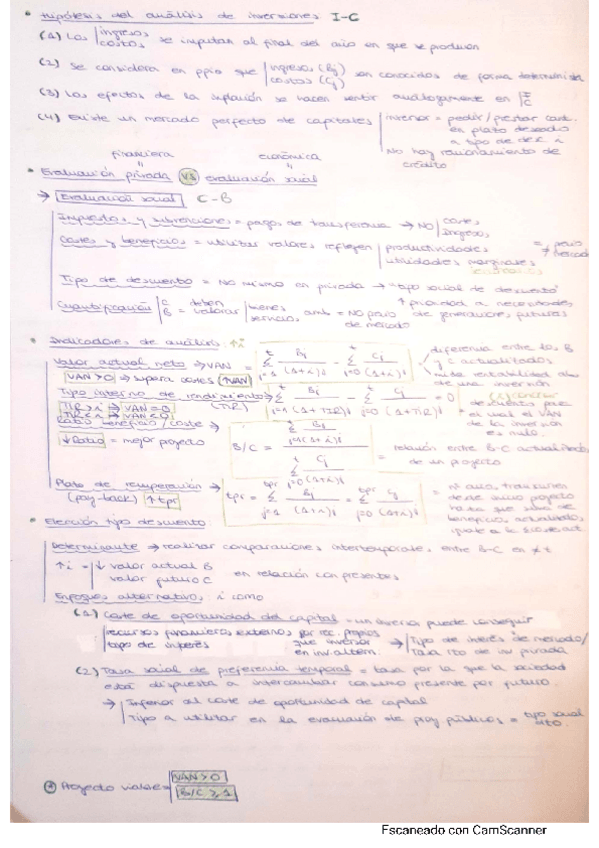 • Hipótesis del análisis de inversiones I-C
(1) Los | ingresos costos se imputan al final del año en que se producen
(2) Se considera en ppio que | ingresos (Bj) costos (Cj) son conocidos de forma determinista
(3) Los efectos de la inflación se hacen sentir análogamente en | C
(4) Existe un mercado perfecto de capitales | inversor = pedir/prestar cant.
en plazo deseado
a tipo de dex. i
No hay racionamiento de crédito
financiera económica
• Evaluación privada VS evaluación social
→ Evaluación social C-B
Impuestos y subvenciones = pagos de transferencia → NO | costes ingresos
Costes y beneficios = utilizar valores reflejen | productividades utilidades marginales ≠ precio mercado
Tipo de descuento = NO mismo en privada → tipo social de descuento
Cuantificación | C B = deben valorar | bienes servicios = NO precio de mercado
↑ prioridad a necesidades de generaciones futuras
• Indicadores de análisis: ↑i
Valor actual neto → VAN = Σ Bj / (1+i)j - Σ Cj / (1+i)j
diferencia entre los B y C actualizados
mide rentabilidad de una inversión
VAN>0 → supera costes ↑VAN
Tipo interno de rendimiento → (TIR) Σ Bj / (1+TIR)j - Σ Cj / (1+TIR)j = 0
descuento para el cual el VAN de la inversión es nulo.
TIR>i → VAN>0
Ratio beneficio/coste →
↓Ratio = mejor proyecto
B/C = Σ Bj / (1+i)j / Σ Cj / (1+i)j = relación entre B-C actualizados de un proyecto
Plazo de recuperación → (pay-back) ↑tpr
tpr = Σ Bj / (1+i)j = Σ Cj / (1+i)j = nº años transcurren desde inicio proyecto hasta que suma de beneficios actualizados iguale a la
• Elección tipo descuento:
Determinante → realizar comparaciones intertemporales entre B-C en ≠ t
↑i = | ↓ valor actual B valor futuro C en relación con presentes
Enfoques alternativos, i como
(1) Coste de oportunidad del capital = un inversor puede conseguir
recursos financieros externos por rec. propios
tipo de interés que inversor en inv. altern. → | Tipo de interés de mercado/ Tasa rto de inv privada
(2) Tasa social de preferencia temporal = tasa por la que la sociedad
está dispuesta a intercambiar consumo presente por futuro.
→ | Inferior al coste de oportunidad de capital
Tipo a utilizar en la evaluación de proy públicos = tipo social dto.
* Proyecto viable = | VAN>0
B/C ≥ 1
Escaneado con CamScanner